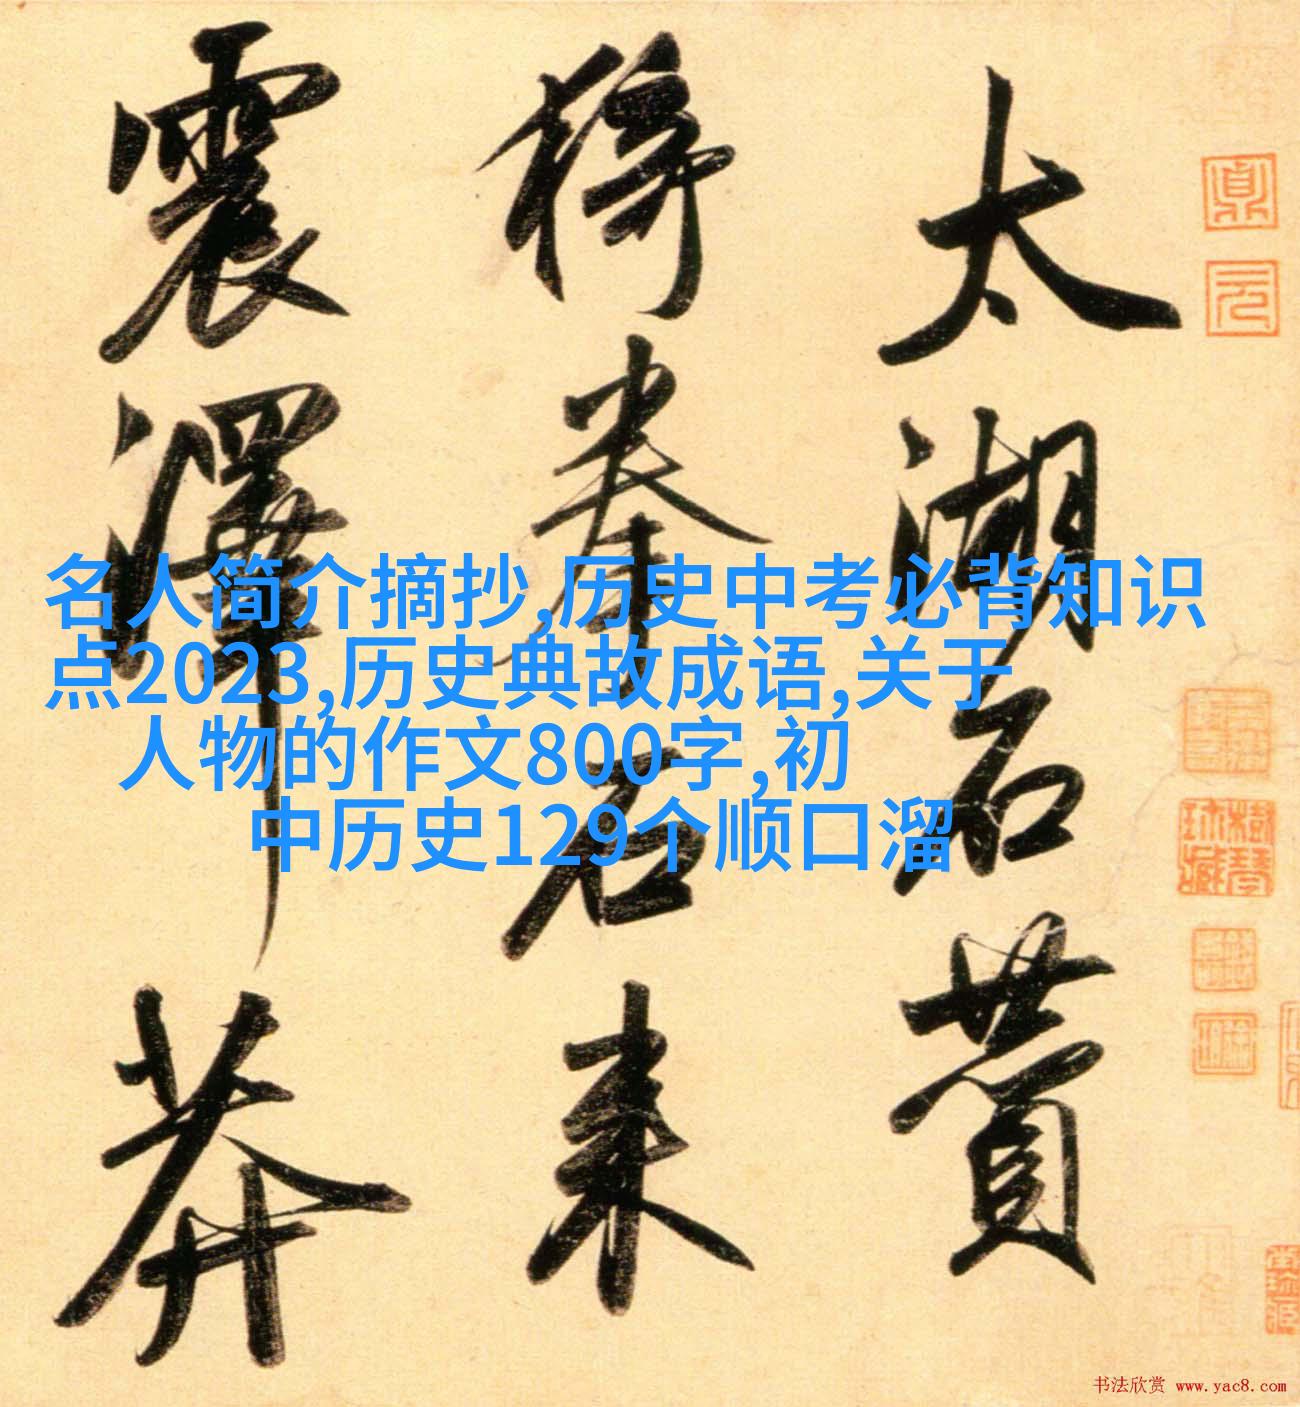 太湖石賛
猗拳石来
震澤莽
名人简介摘抄,历史中考必背知识
点2023,历史典故成语,关于
人物的作文800字,初
中历史129个顺口溜
书法欣赏 www.yac8.com